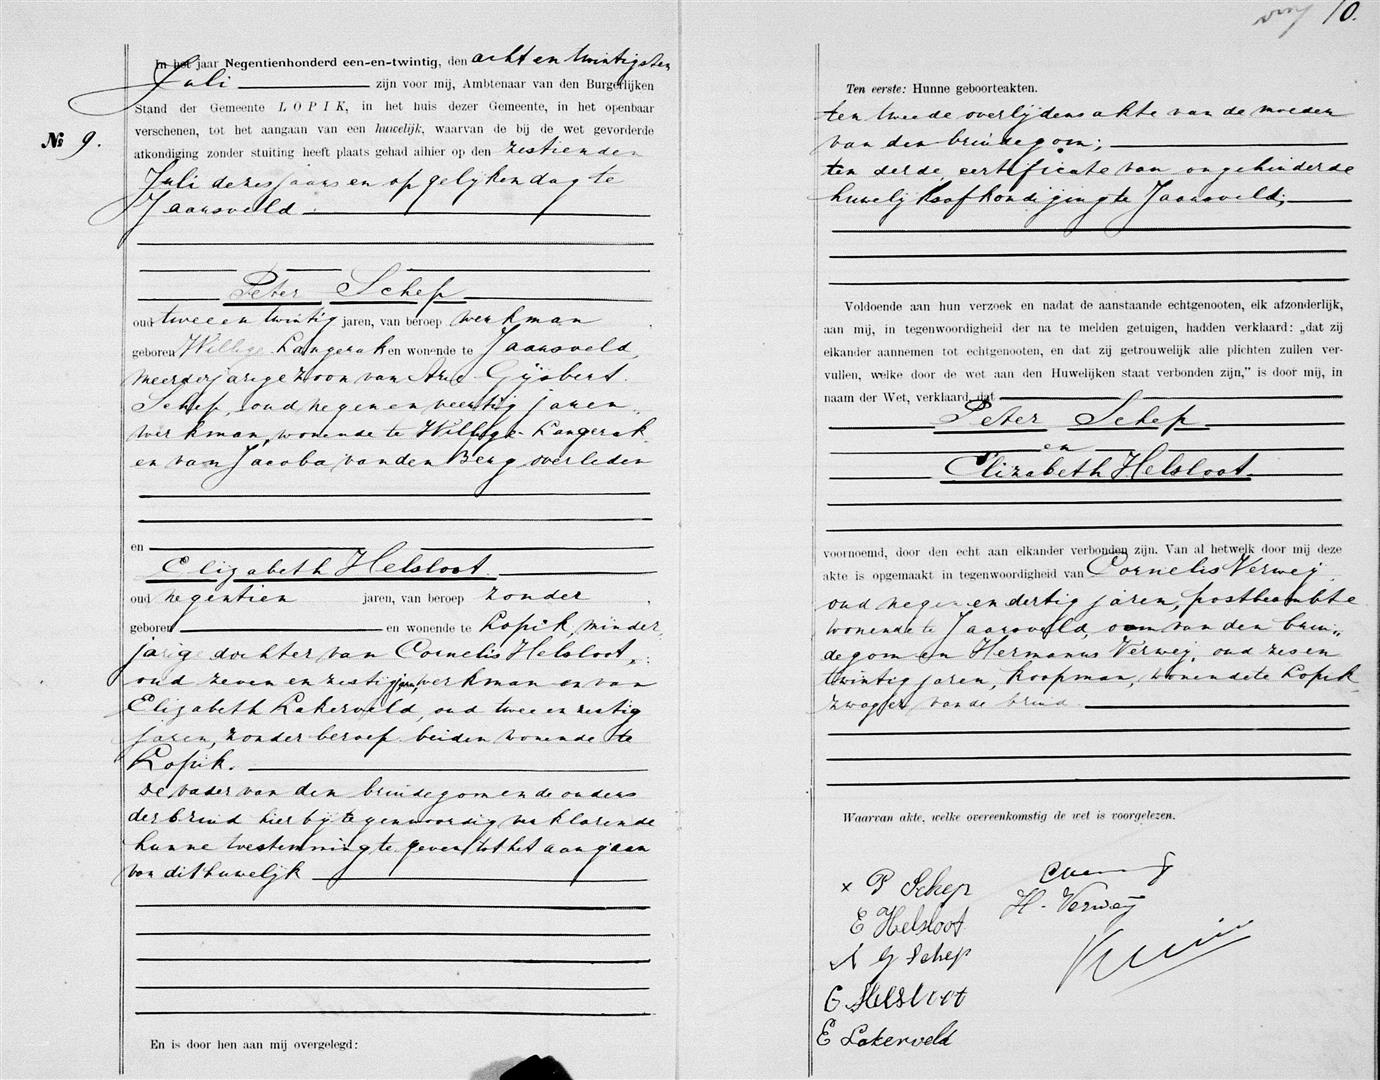 10.
No 9.
In het jaar Negentienhonderd een-en-twintig, den acht en twintigsten
Juli zijn voor mij, Ambtenaar van den Burgerlijken
Stand der Gemeente LOPIK, in het huis dezer Gemeente, in het openbaar
verschenen, tot het aangaan van een huwelijk, waarvan de bij de wet gevorderde
afkondiging zonder stuiting heeft plaats gehad alhier op den zestienden
Juli dezes jaars en op gelijken dag te
Jaarsveld
Peter Schep
oud twee en twintig jaren, van beroep werkman
geboren Willige Langerak en wonende te Jaarsveld,
meerderjarige zoon van Arie Gijsbert
Schep, oud negen en veertig jaren,
werkman, wonende te Willige-Langerak
en van Jacoba van den Berg overleden
en
Elizabeth Helsloot
oud negentien jaren, van beroep zonder
geboren en wonende te Lopik, minder-
jarige dochter van Cornelis Helsloot,
oud zeven en zestig jaren, werkman en van
Elizabeth Lakerveld, oud twee en zestig
jaren, zonder beroep beiden wonende te
Lopik.
De vader van den bruidegom en de ouders
der bruid hierbij tegenwoordig verklarende
hunne toestemming te geven tot het aangaan
van dit huwelijk
En is door hen aan mij overgelegd:
Ten eerste: Hunne geboorteakten.
ten tweede overlijdensakte van de moeder
van den bruidegom;
ten derde, certificate van ongehinderde
huwelijksafkondiging te Jaarsveld;
Voldoende aan hun verzoek en nadat de aanstaande echtgenooten, elk afzonderlijk,
aan mij, in tegenwoordigheid der na te melden getuigen, hadden verklaard: „dat zij
elkander aannemen tot echtgenooten, en dat zij getrouwelijk alle plichten zullen ver-
vullen, welke door de wet aan den Huwelijken staat verbonden zijn,” is door mij, in
naam der Wet, verklaard, dat
Peter Schep
en
Elizabeth Helsloot
voornoemd, door den echt aan elkander verbonden zijn. Van al hetwelk door mij deze
akte is opgemaakt in tegenwoordigheid van Cornelis Verweij
oud negen en dertig jaren, postbeambte
wonende te Jaarsveld, oom van den brui-
degom en Hermanus Verweij, oud zes en
twintig jaren, koopman, wonende te Lopik
zwager van de bruid
Waarvan akte, welke overeenkomstig de wet is voorgelezen.
x P Schep
E Helsloot
H. Verweij
A G Schep
C Helsloot
E Lakerveld